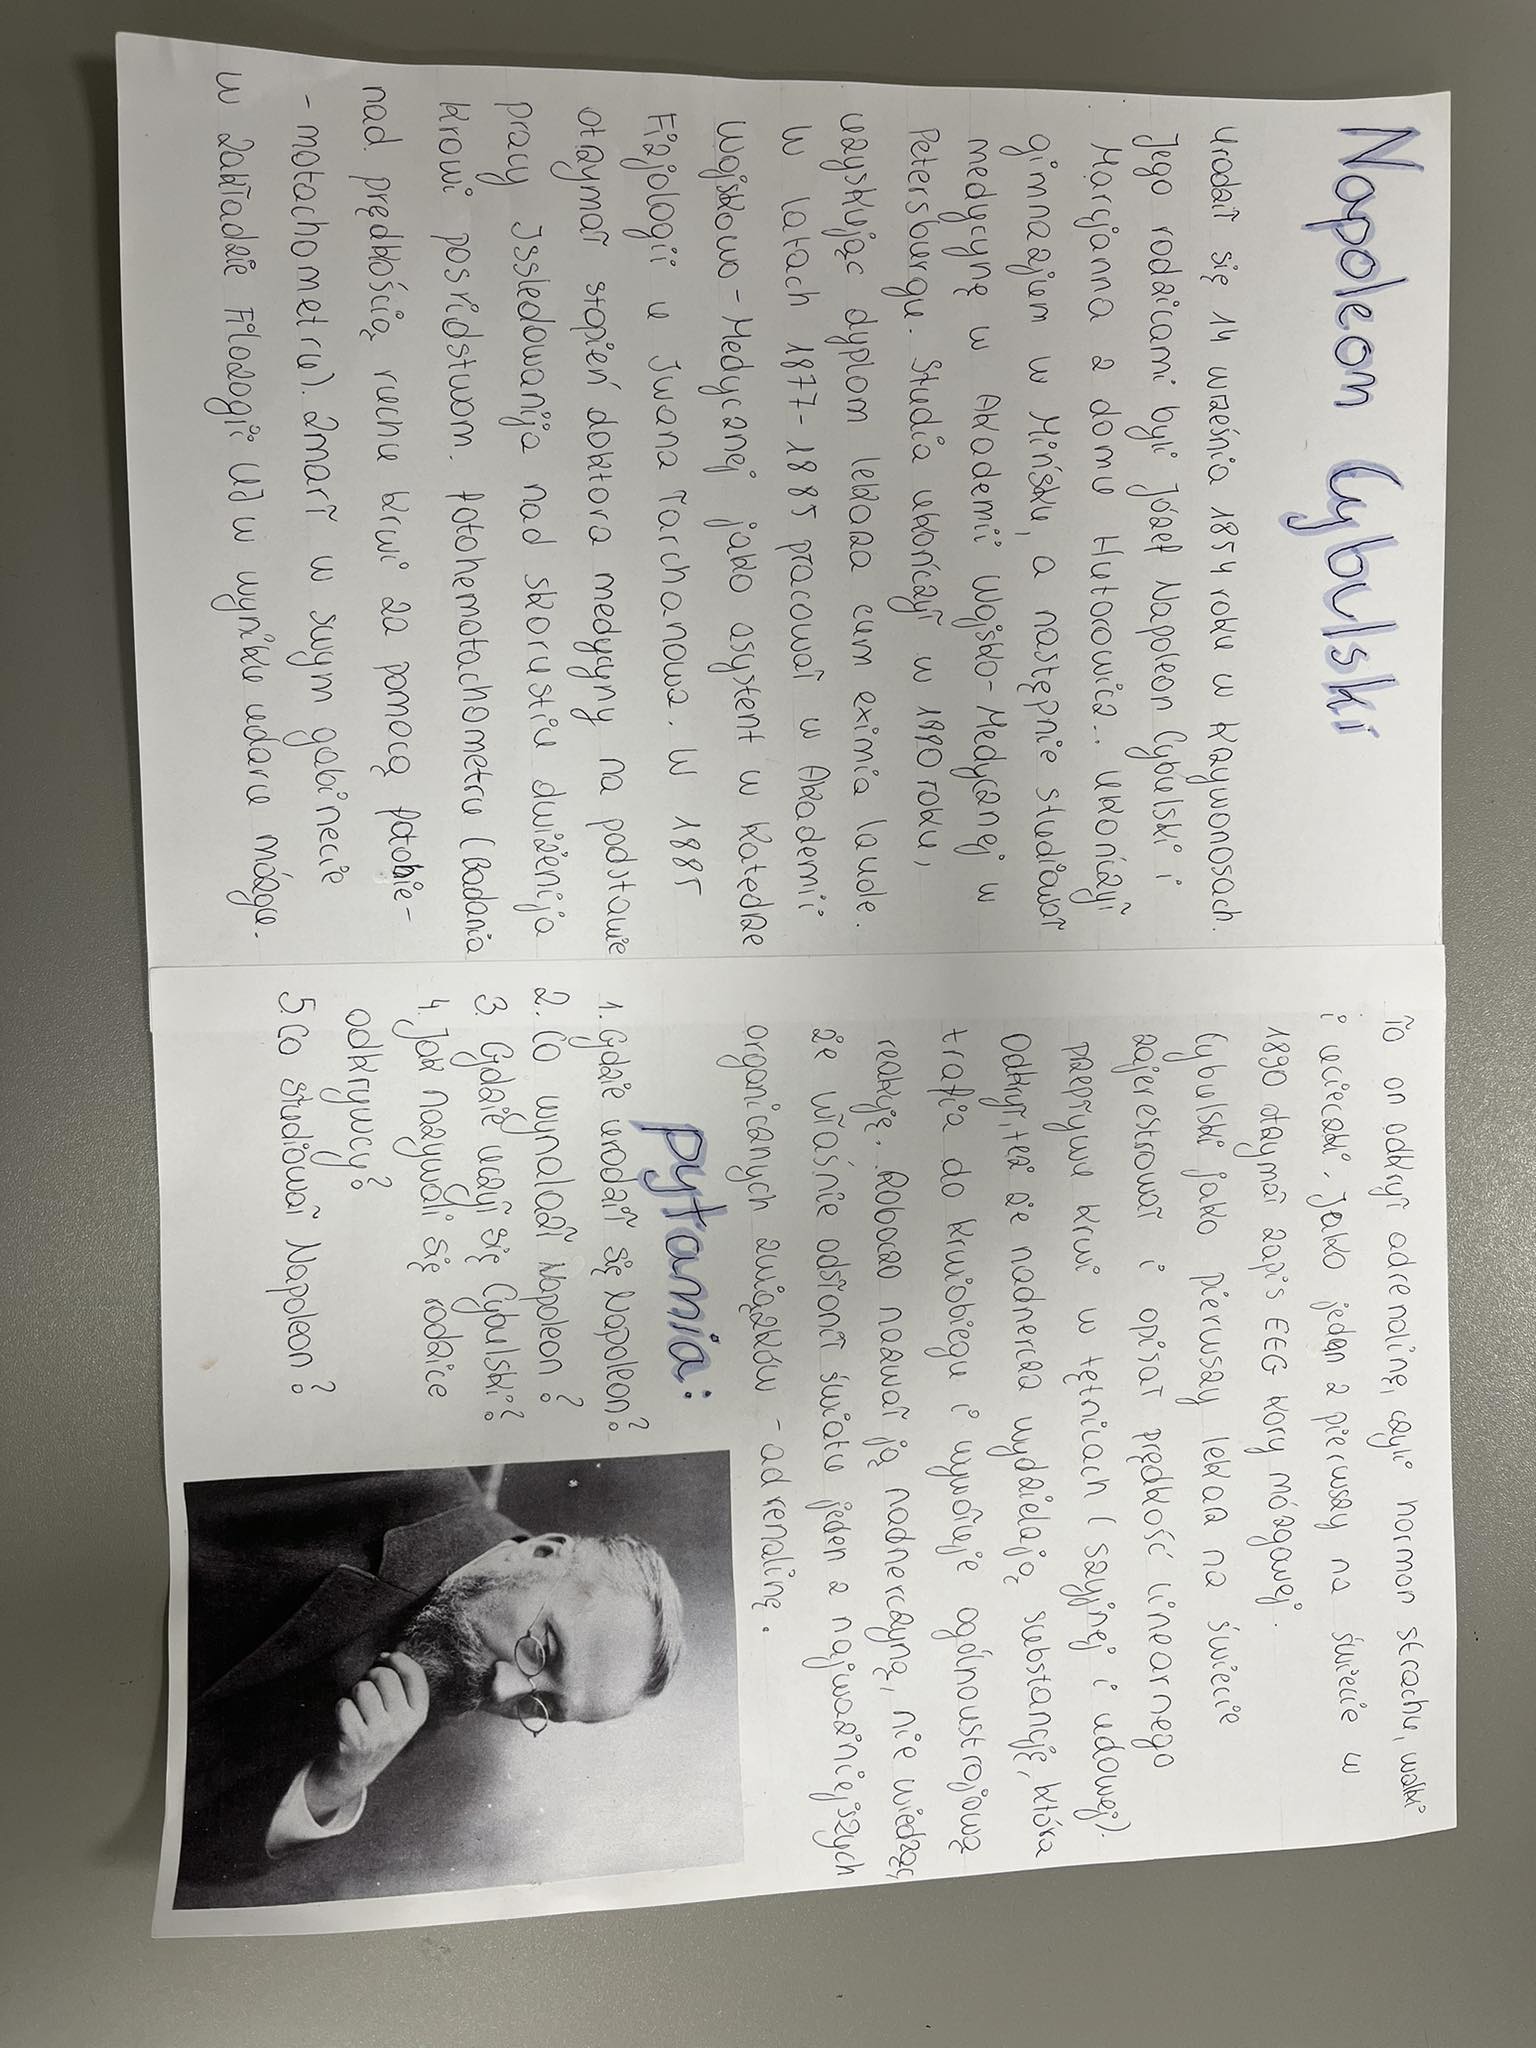 Napoleon Cybulski
Urodził się 14 września 1854 roku w Krzywonosach.
Jego rodzicami byli Józef Napoleon Cybulski i
Marcjanna z domu Hutorowicz.. Ukończył
gimnazjum w Mińsku, a następnie studiował
medycynę w Akademii Wojsko-Medycznej w
Petersburgu. Studia ukończył w 1880 roku,
uzyskując dyplom lekarza cum eximia laude.
W latach 1877-1885 pracował w Akademii
Wojskowo-Medycznej jako asystent w Katedrze
Fizjologii u Iwana Tarchanowa. W 1885
otrzymał stopień doktora medycyny na podstawie
pracy Issledowanija nad skorustiu dwiżenija
krowi posridstwom. fotohemotachometru (Badania
nad prędkością ruchu krwi za pomocą fotohie-
-motachometru). Zmarł w swym gabinecie
w Zakładzie Filozogii UJ w wyniku udaru mózgu.
To on odkrył adrenalinę, czyli hormon strachu, walki
i ucieczki. Jako jeden z pierwszy na świecie w
1890 otrzymał zapis EEG kory mózgowej.
Cybulski jako pierwszy lekarz na świecie
zajerestrował i opisał prędkość linearnego
przepływu krwi w tętnicach (szyjnej i udowej).
Odkrył, też że nadnercza wydzielają substancję, która
trafia do krwiobiegu i wywołuje ogólnoustrojową
reakcję. Roboczo nazwał ją nadnerczyną, nie wiedząc,
że właśnie odsłonił światu jeden z najważniejszych
organicznych związków - adrenalinę.
Pytania:
1. Gdzie urodził się Napoleon?
2. Co wynalazł Napoleon?
3 Gdzie uczył się Cybulski?
4. Jak nazywali się rodzice
odkrywcy?
5. Co studiował Napoleon?